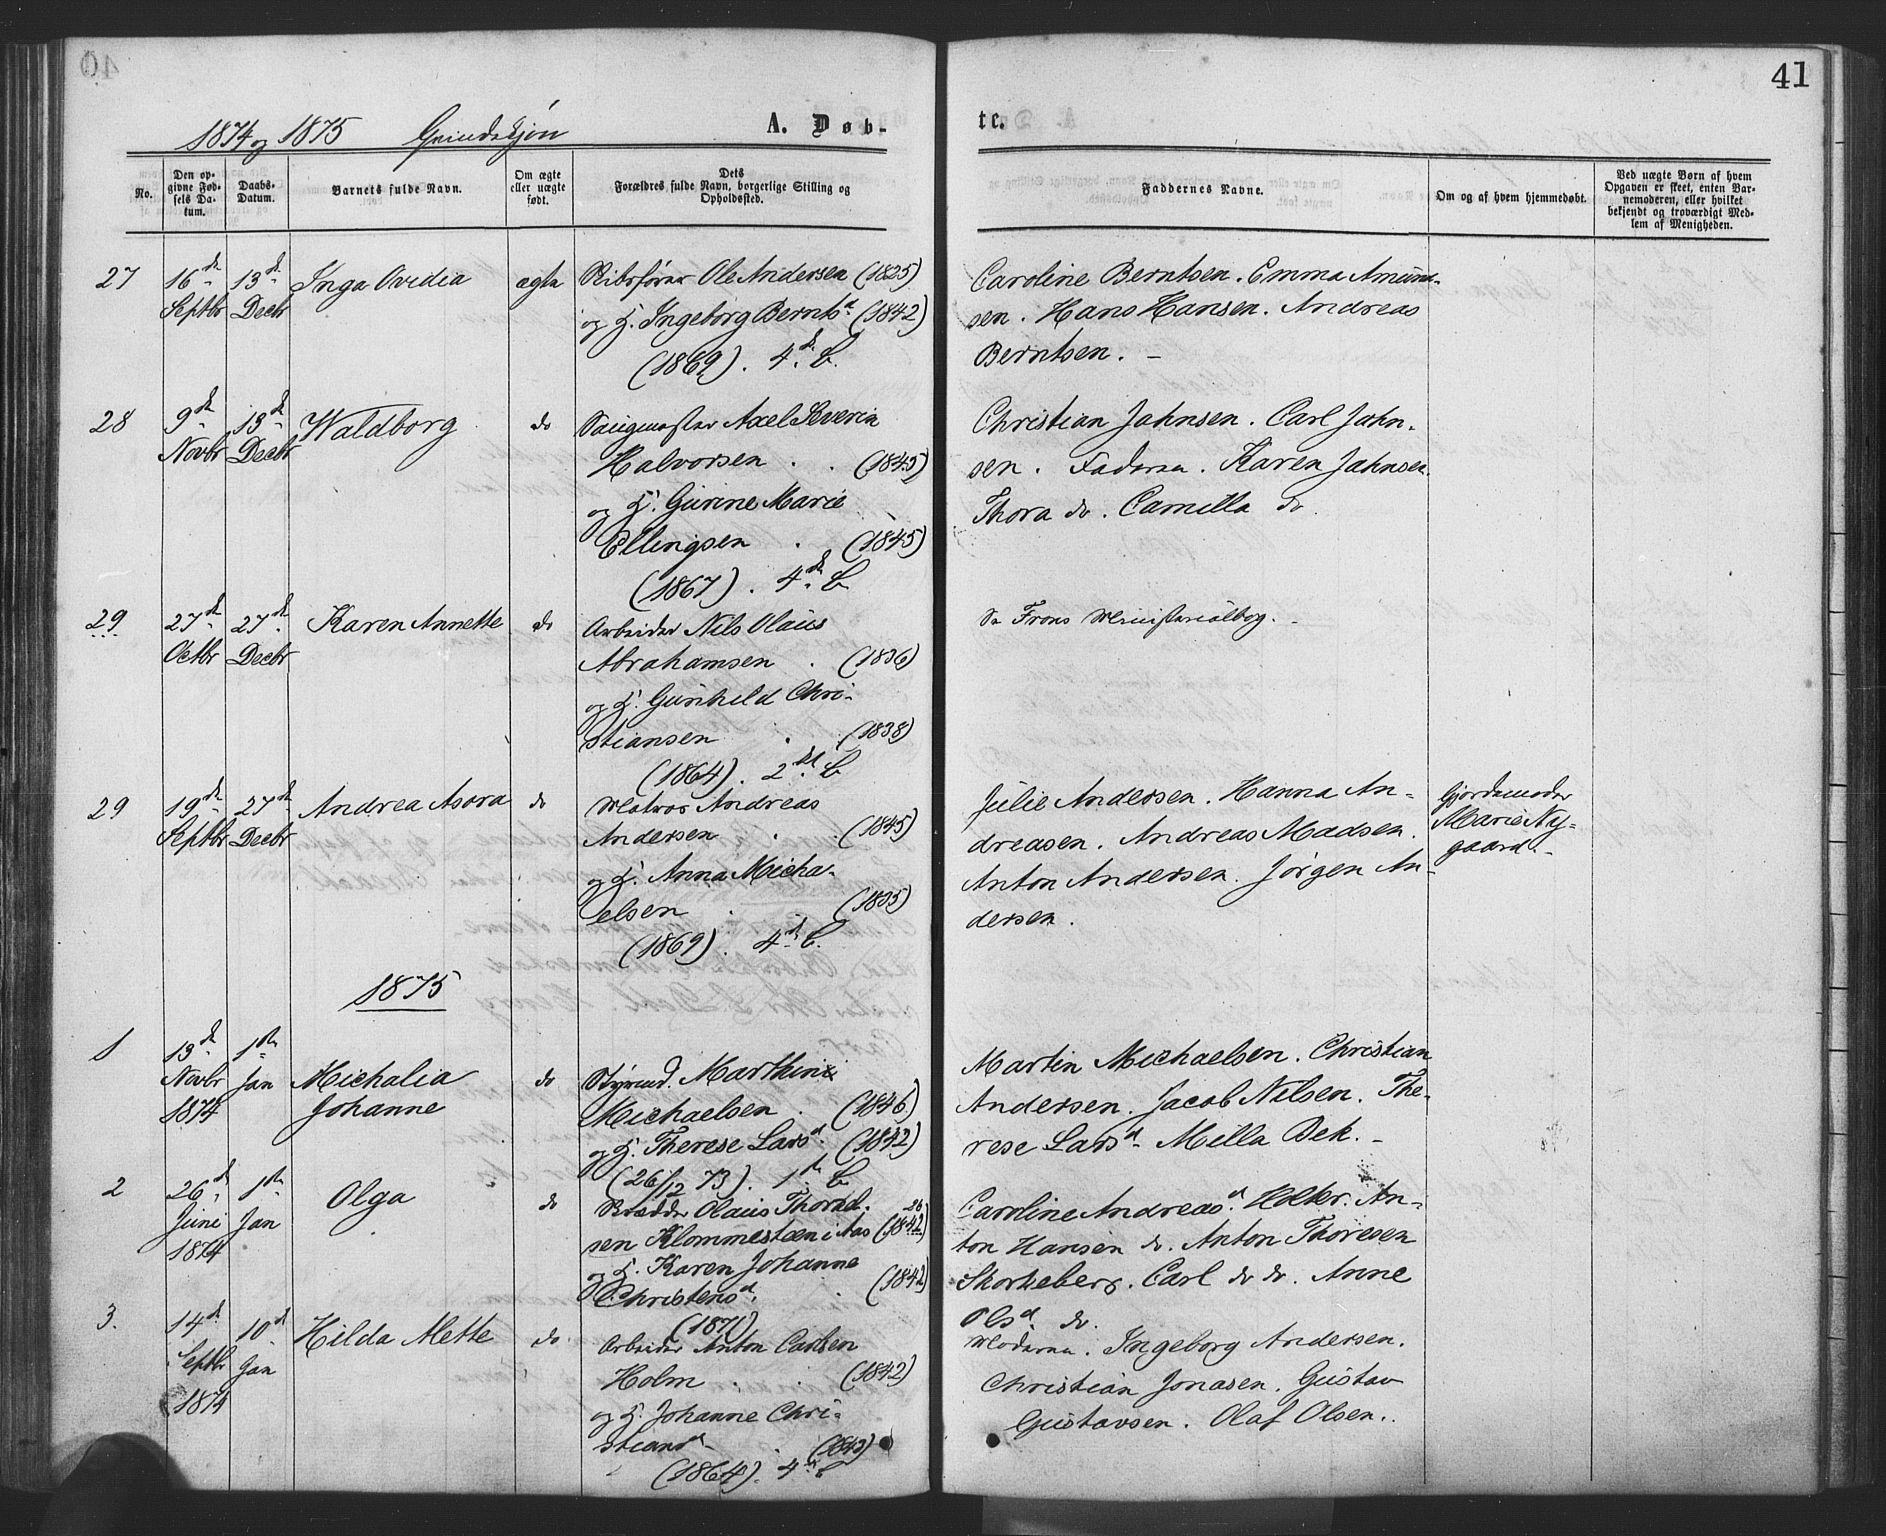 41
1874 og 1875 Grindskjøn A. Døb-
te.
No.
Den op-
givne Fød-
sels Da-
tum.
Daabs-
Datum.
Barnets fulde Navn.
Om ægte
eller uægte
født.
Dets
Forældres fulde Navn, borgerlige Stilling og
Opholdssted.
Faddernes Navne.
Om og af hvem hjemmedøbt.
Ved uægte Børn af hvem
Opgaven er skeet, enten Bar-
nemoderen, eller hvilket
bekjendt og troværdigt Med-
lem af Menigheden.
27
16de
Septbr
13de
Decbr
Inga Ovidia
ægte
Skibsfører Ole Andersen (1825)
og H. Ingeborg Bernts d (1842)
(1869). 4de B.
Caroline Berntsen. Emma Amund-
sen. Hans Hansen. Andreas
Berntsen. –
28
9de
Novbr
13de
Decbr
Waldborg
do
Axel Severin
Halvorsen . . (1845)
og H. Gurine Marie
Ellingsen . (1845)
(1867). 4de B
Christian Jahnsen. Carl Jahn-
sen. Faderen. Karen Jahnsen.
Thora do. Camilla do
29
27de
Octbr
27de
Decbr
Karen Annette
do
Arbeider Nils Olaus
Abrahamsen . (1836)
og H. Gunhild Chri-
stiansen . (1838)
(1864). 2det B
Se Frons Ministerialbog. –
29
19de
Septbr
27de
Decbr
Andrea Asora
do
Matros Andreas
Andersen . . (1845)
og H. Anna Micha-
elsen . . (1835)
(1869). 4de B.
Julie Andersen. Hanna An-
dreasen. Andreas Madsen.
Anton Andersen. Jørgen An-
dersen.
Gjordemoder
Marie Ny-
gaard. –
1875
1
13de
Novbr
1874
1ste
Jan
Michalia
Johanne
do
Styrmd. Marthin
Michaelsen . (1846)
og H. Therese Lars d. (1842)
(26/12 73). 1ste B
Martin Michaelsen. Christian
Andersen. Jacob Nilsen. The-
rese Lars d. Milla Bek. –
2
26de
Juni
1874
1ste
Jan
Olga
do
Olaus Thorvald-
sen Klommesteen i Aas (1842)
og H. Karen Johanne
Christens d. . (1842)
(1871)
Caroline Andreas d. Holter. An-
ton Hansen do. Anton Thoresen
Skorkeberg. Carl do do. Anne
Ols d. do.
3.
14de
Septbr
1874
10de
Jan
Hilda Mette
do
Arbeider Anton Carlsen
Holm . . (1842)
og H. Johanne Chri-
stians d . (1843)
(1864). 4de B
Moderen. Ingeborg Andersen.
Christian Jonasen. Gustav
Gustavsen. Olaf Olsen.